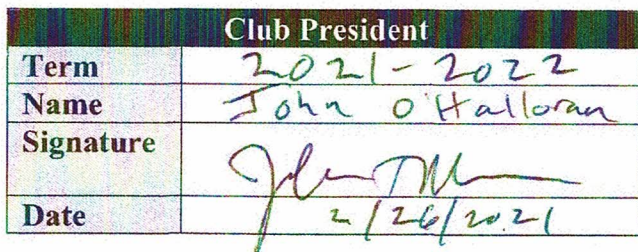 Club President
Term 2021-2022
Name John O'Halloran
Signature
Date 2/26/2021